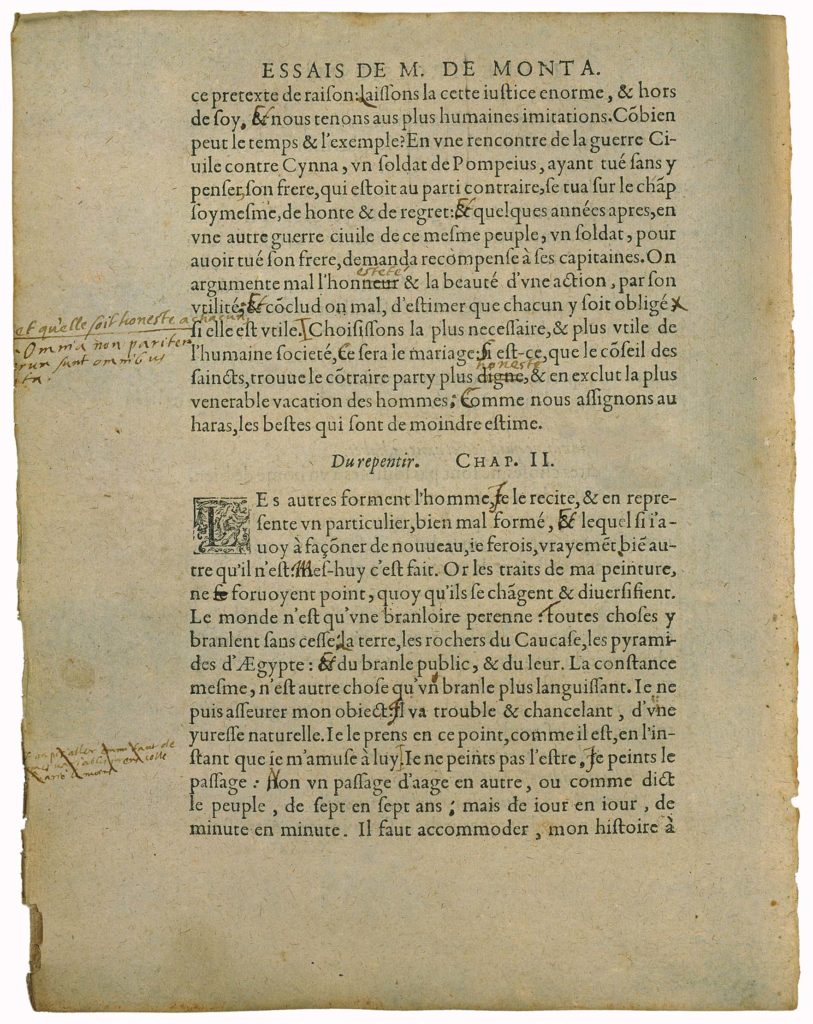 ESSAIS DE M. DE MONTA.
ce pretexte de raison: Laissons la cette iustice enorme, & hors
de soy, Et nous tenons aus plus humaines imitations. Cõbien
peut le temps & l'exemple? En vne rencontre de la guerre Ci-
uile contre Cynna, vn soldat de Pompeius, ayant tué sans y
penser, son frere, qui estoit au parti contraire, se tua sur le chãp
soymesme, de honte & de regret: Et quelques années apres, en
vne autre guerre ciuile de ce mesme peuple, vn soldat, pour
auoir tué son frere, demanda recõpense à ses capitaines. On
argumente mal l'honneur & la beauté d'vne action, par son
vtilité: Et cõclud on mal, d'estimer que chacun y soit obligé
et qu'elle soit honeste a chacun
si elle est vtile. Choisissons la plus necessaire, & plus vtile de
Omnia non pariter
rerum sunt omnibus
l'humaine societé, Ce sera le mariage: Si est-ce, que le cõseil des
honeste
saincts, trouue le cõtraire party plus digne, & en exclut la plus
venerable vacation des hommes: Comme nous assignons au
haras, les bestes qui sont de moindre estime.
Du repentir. CHAP. II.
LEs autres forment l'homme, Ie le recite, & en repre-
sente vn particulier, bien mal formé, Et lequel si i'a-
uoy à façõner de nouueau, ie ferois, vrayemẽt, biẽ au-
tre qu'il n'est: Mes-huy c'est fait. Or les traits de ma peinture,
ne se foruoyent point, quoy qu'ils se chãgent & diuersifient.
Le monde n'est qu'vne branloire perenne: Toutes choses y
branlent sans cesse: La terre, les rochers du Caucase, les pyrami-
des d'Ægypte: Et du branle public, & du leur. La constance
mesme, n'est autre chose qu'vn branle plus languissant. Ie ne
puis asseurer mon obiect: Il va trouble & chancelant, d'vne
yuresse naturelle. Ie le prens en ce point, comme il est, en l'in-
stant que ie m'amuse à luy. Ie ne peints pas l'estre, Ie peints le
passage: Non vn passage d'aage en autre, ou comme dict
le peuple, de sept en sept ans; mais de iour en iour, de
minute en minute. Il faut accommoder, mon histoire à